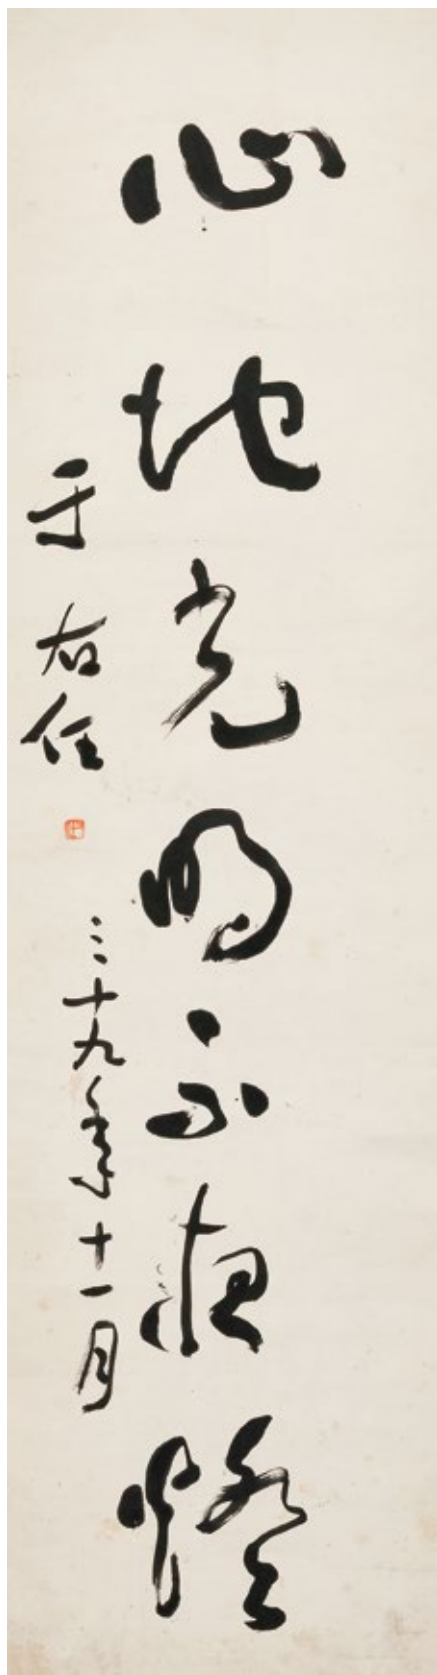 心地光明不夜燈
于右任
三十九年十一月